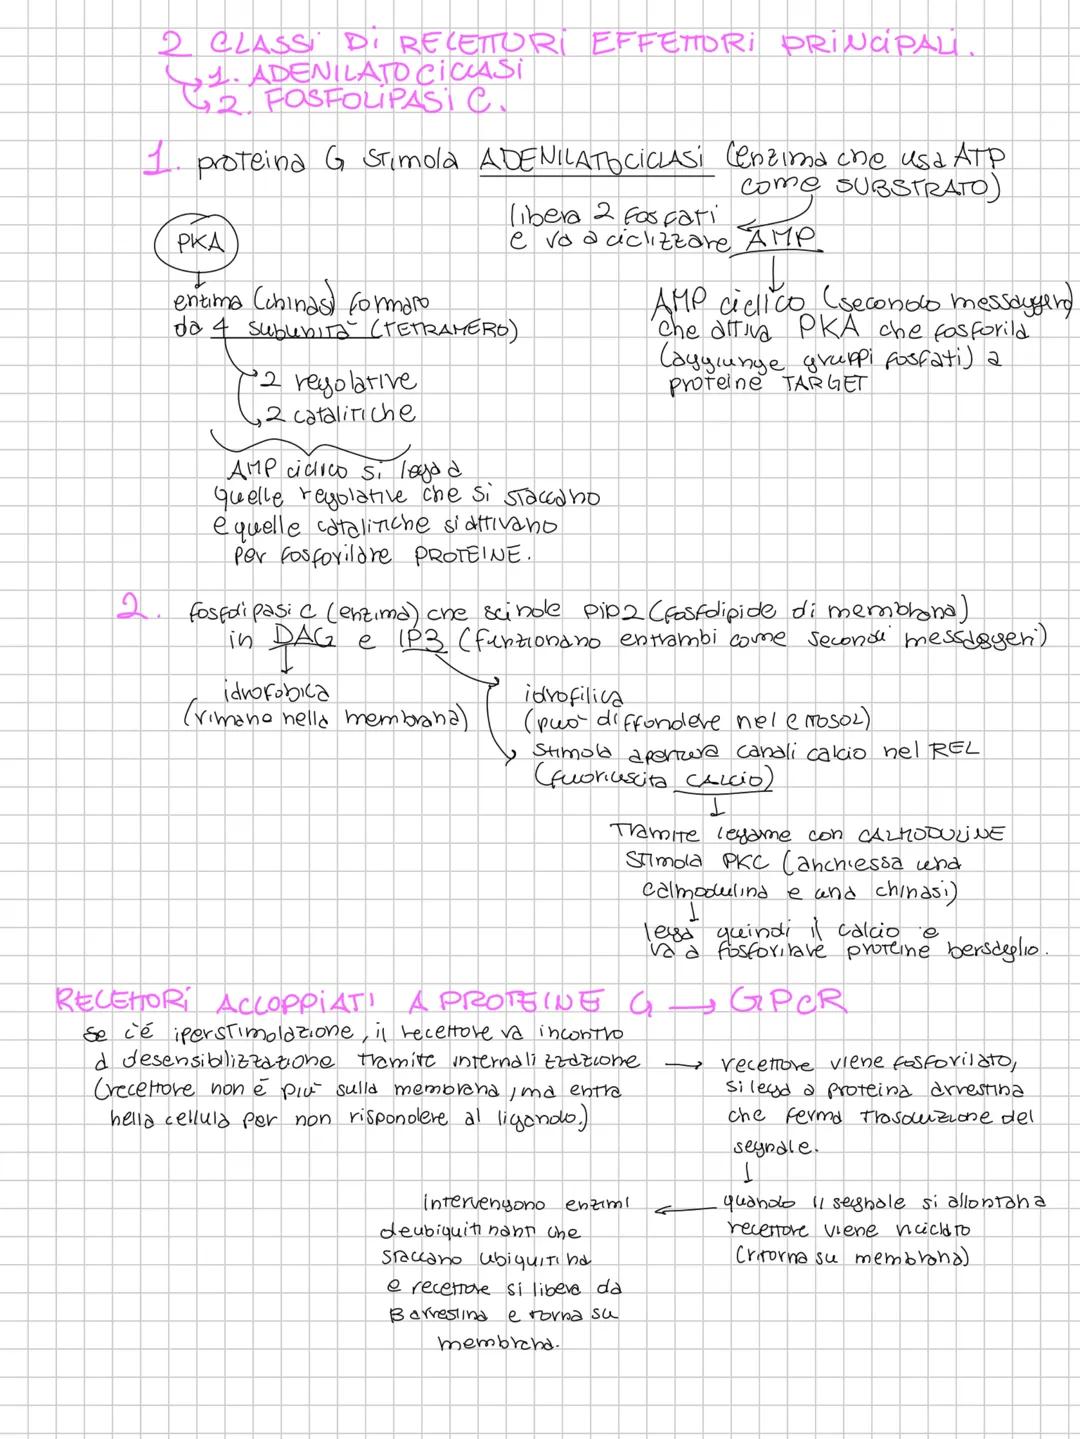 2 CLASSI DI RECETTORI EFFETTORI PRINCIPALI.
1. ADENILATO CICLASI
2. FOSFOLIPASI C.
1. proteina G stimola ADENILATOCICLASI (enzima che usa ATP
come SUBSTRATO)
libera 2 fosfati
e va a ciclizzare AMP
PKA
enzima (chinasi) formato
da 4 subunità (TETRAMERO)
2 regolative
2 catalitiche
AMP ciclico si lega a
quelle regolative che si staccano
e quelle catalitiche si attivano
per fosforilare PROTEINE.
AMP ciclico (secondo messaggero)
che attiva PKA che fosforila
(aggiunge gruppi fosfati) a
proteine TARGET
2. fosfolipasi C (enzima) che scinde PIP2 (fosfolipide di membrana)
in DAG e IP3 (funzionano entrambi come secondi messaggeri)
idrofobica
(rimane nella membrana)
idrofilica
(può diffondere nel citosol)
stimola apertura canali calcio nel REL
(fuoriuscita CALCIO)
Tramite legame con CALMODULINE
stimola PKC (anch'essa una
calmodulina e una chinasi)
lega quindi il calcio e
va a fosforilare proteine bersaglio.
RECETTORI ACCOPPIATI A PROTEINE G → GPCR
se c'é iperstimolazione, il recettore va incontro
a desensibilizzazione tramite internalizzazione
(recettore non é più sulla membrana, ma entra
nella cellula per non rispondere al ligando.)
→ recettore viene fosforilato,
si lega a proteina arrestina
che ferma trasduzione del
segnale.
quando il segnale si allontana
recettore viene riciclato
(ritorna su membrana)
intervengono enzimi
deubiquitinanti che
staccano ubiquitina
e recettore si libera da
B arrestina e torna su
membrana.